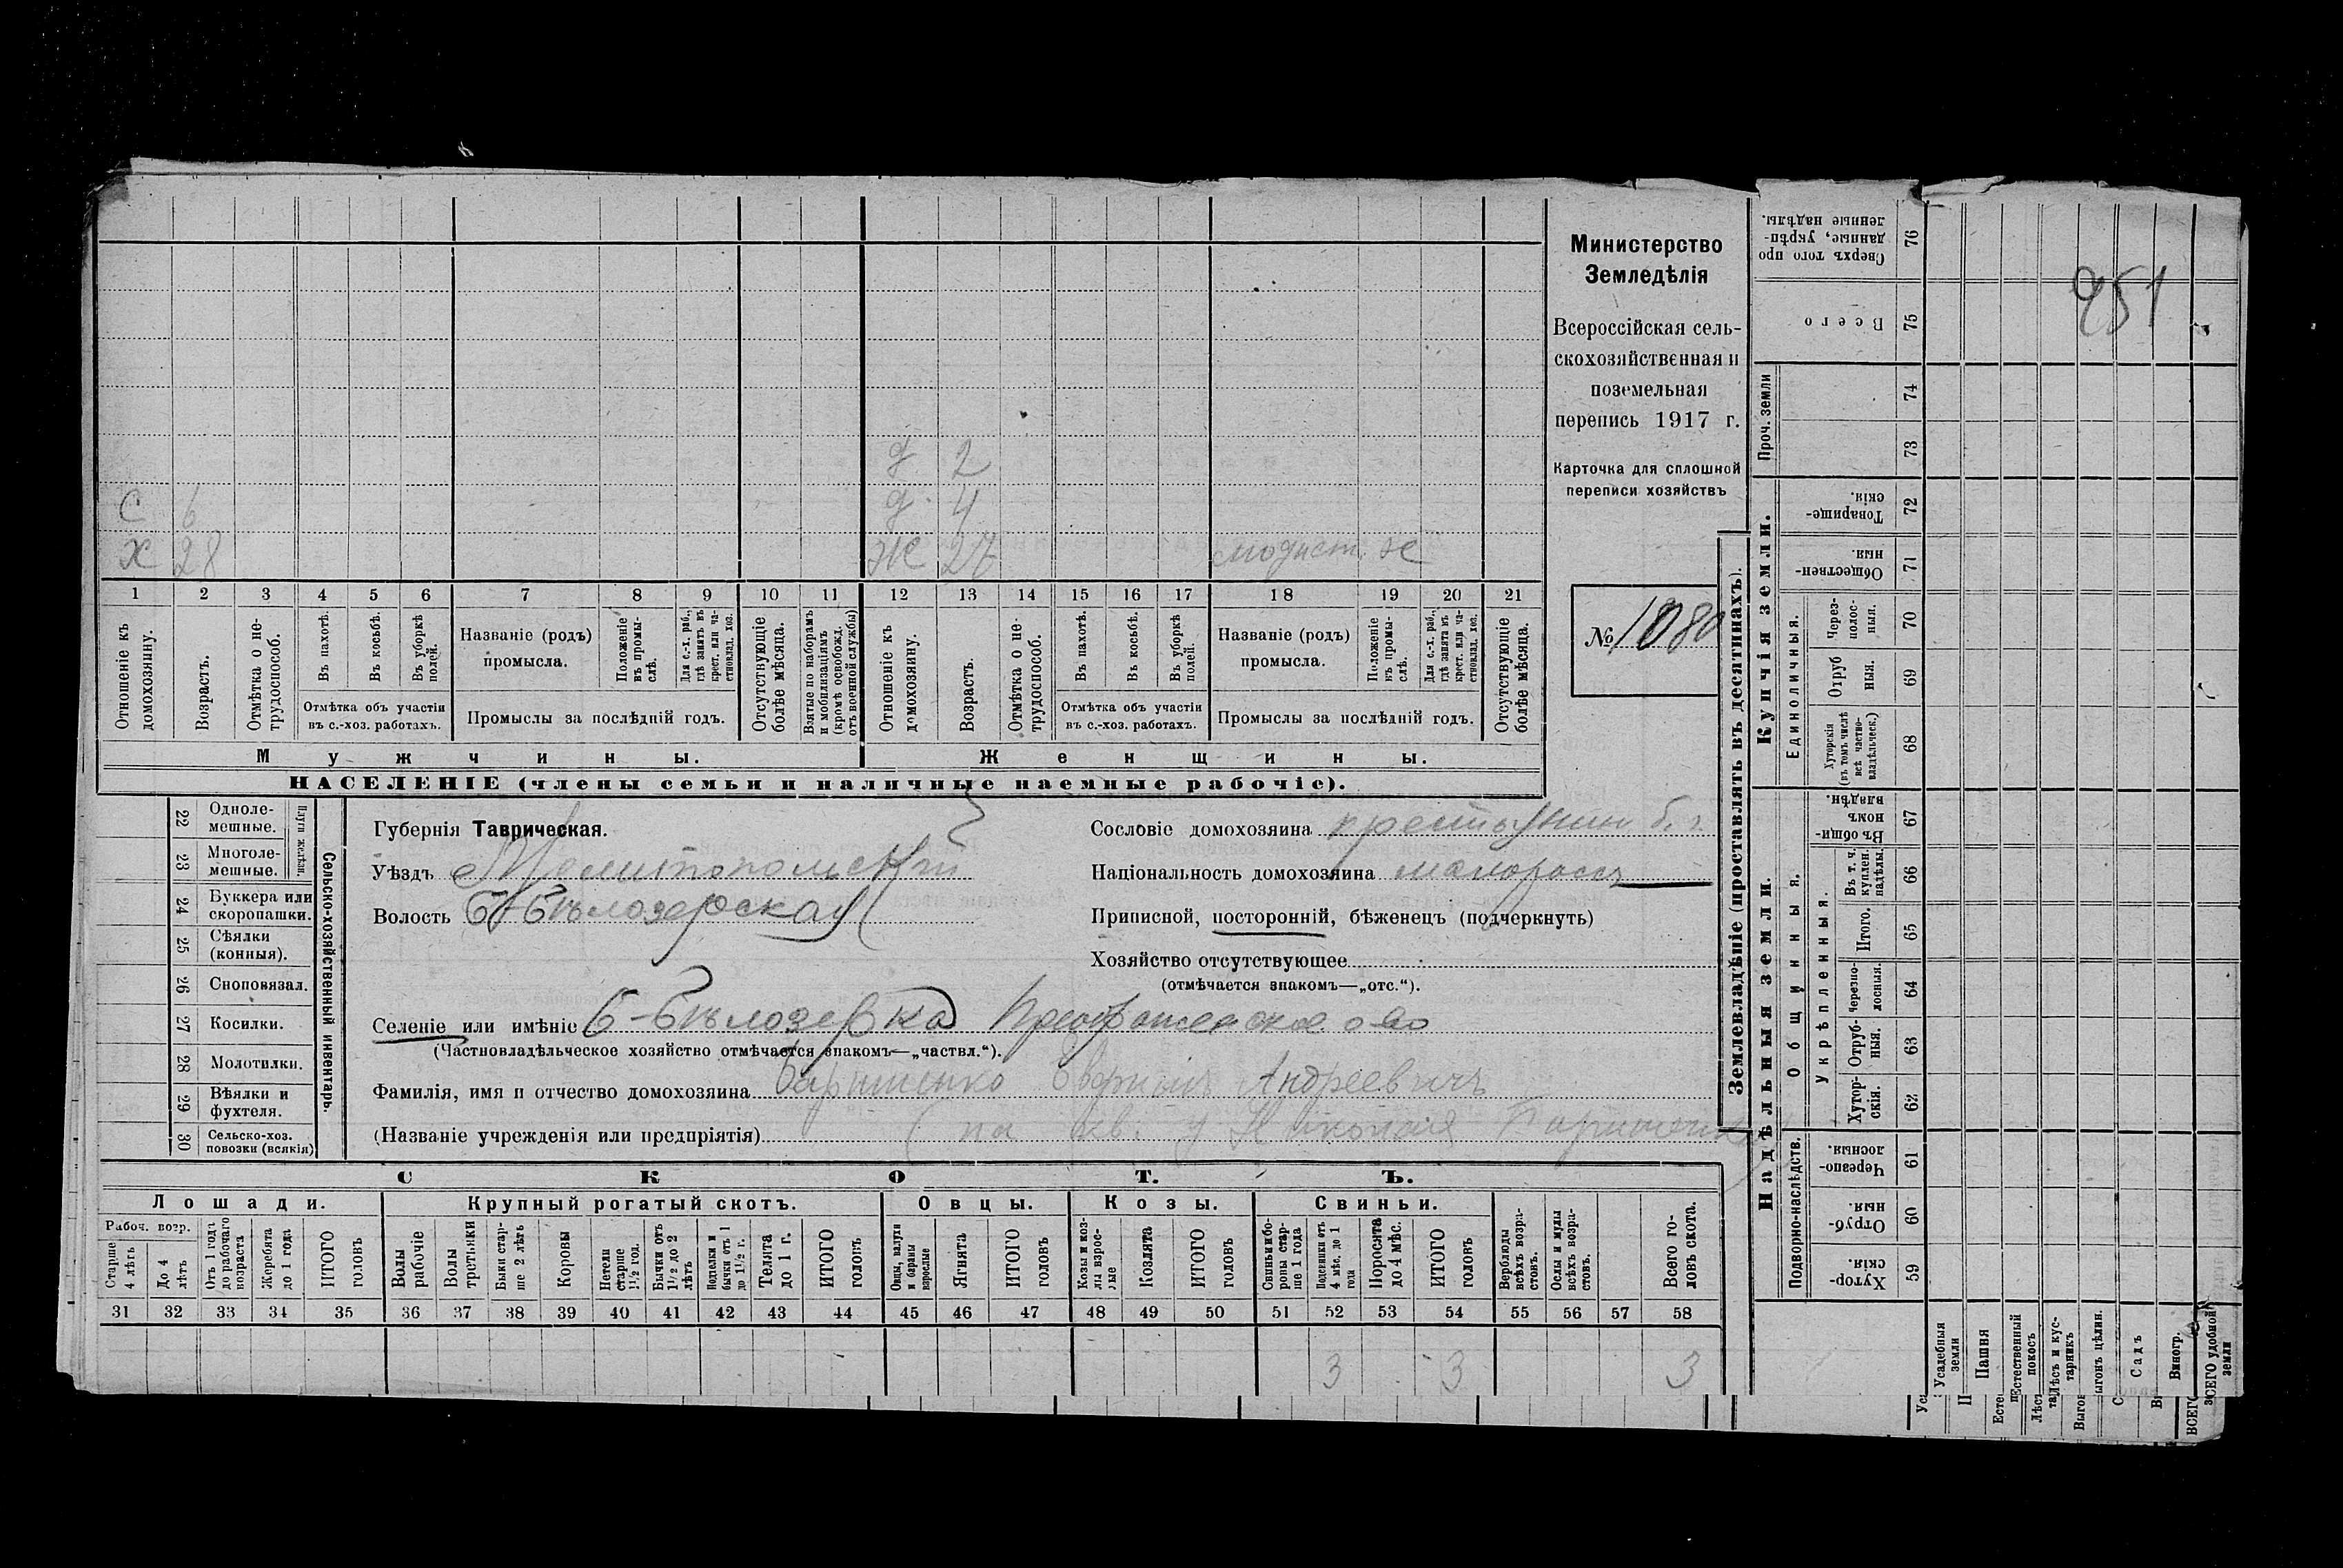 Министерство
Земледѣлія
Всероссійская сель-
скохозяйственная и
поземельная
перепись 1917 г.
Карточка для сплошной
переписи хозяйствъ
№ 1080
951
д 2
С 6 д. 4
Х 28 Ж 27 модист. х
1 2 3 4 5 6 7 8 9 10 11 12 13 14 15 16 17 18 19 20 21
Отношеніе къ домохозяину.
Возрастъ.
Отмѣтка о не-трудоспособ.
Въ пахотѣ.
Въ косьбѣ.
Въ уборкѣ полей.
Отмѣтка объ участіи
въ с.-хоз. работахъ.
Названіе (родъ)
промысла.
Положеніе въ промы-слѣ.
Для с.-х. раб., гдѣ занятъ въ крест. или ча-стновлад. хоз.
Промыслы за послѣдній годъ.
Отсутствующіе болѣе мѣсяца.
Взятые по наборамъ и мобилизаціямъ (кромѣ освобожд. отъ военной службы)
Отношеніе къ домохозяину.
Возрастъ.
Отмѣтка о не-трудоспособ.
Въ пахотѣ.
Въ косьбѣ.
Въ уборкѣ полей.
Отмѣтка объ участіи
въ с.-хоз. работахъ.
Названіе (родъ)
промысла.
Положеніе въ промы-слѣ.
Для с.-х. раб., гдѣ занята въ крест. или ча-стновлад. хоз.
Промыслы за послѣдній годъ.
Отсутствующіе болѣе мѣсяца.
Мужчины. Женщины.
НАСЕЛЕНІЕ (члены семьи и наличные наемные рабочіе).
Сельско-хозяйственный инвентарь.
Плуги желѣзн.
22 Одноле-мешные.
23 Многоле-мешные.
24 Буккера или скоропашки.
25 Сѣялки (конныя).
26 Сноповязал.
27 Косилки.
28 Молотилки.
29 Вѣялки и фухтеля.
30 Сельско-хоз. повозки (всякія)
Губернія Таврическая.
Уѣздъ Мелитопольскій
Волость Б-Бѣлозерская
Сословіе домохозяина крестьянин б. з.
Національность домохозяина малороссъ
Приписной, посторонній, бѣженецъ (подчеркнуть)
Хозяйство отсутствующее
(отмѣчается знакомъ—„отс.“).
Селеніе или имѣніе Б-Бѣлозерка Преображенское о-во
(Частновладѣльческое хозяйство отмѣчается знакомъ—„частвл.“).
Фамилія, имя и отчество домохозяина Андреевичъ
(Названіе учрежденія или предпріятія) (на кв. у
СКОТЪ.
Лошади. Крупный рогатый скотъ. Овцы. Козы. Свиньи.
Рабоч. возр.
Старше 4 лѣтъ
До 4 лѣтъ
Отъ 1 года до рабочаго возраста
Жеребята до 1 года
ИТОГО головъ
Волы рабочіе
Волы третьяки
Быки стар-ше 2 лѣтъ
Коровы
Нетели старше 1½ год.
Бычки отъ 1½ до 2 лѣтъ
Нетельки и бычки отъ 1 до 1½ г.
Телята до 1 г.
ИТОГО головъ
Овцы, валухи и бараны взрослые
Ягнята
ИТОГО головъ
Козы и коз-лы взрос-лые
Козлята
ИТОГО головъ
Свиньи и бо-ровы стар-ше 1 года
Подсвинки отъ 4 мѣс. до 1 года
Поросята до 4 мѣс.
ИТОГО головъ
Верблюды всѣхъ возра-стовъ.
Ослы и мулы всѣхъ возра-стовъ.
Всего го-ловъ скота.
31 32 33 34 35 36 37 38 39 40 41 42 43 44 45 46 47 48 49 50 51 52 53 54 55 56 57 58
3 3 3
Землевладѣніе (проставлять въ десятинахъ).
Надѣльныя земли. Купчія земли. Проч. земли
Подворно-наслѣдств. Общинныя. Единоличныя.
Укрѣпленныя.
59 Хутор-скія.
60 Отруб-ныя.
61 Черезпо-лосныя.
62 Хутор-скія.
63 Отруб-ныя.
64 Черезпо-лосныя.
65 Итого.
66 Въ т. ч. куплен. надѣлы.
67 Въ общи-номъ владѣн.
68 Хуторскія (въ томъ числѣ всѣ частно-владѣльческ.)
69 Отруб ныя.
70 Через-полос-ныя.
71 Обществен-ныя.
72 Товарище-скія.
73
74
75 Всего
76 Сверхъ того про данные, укрѣп-ленные надѣлы.
Усадебныя земли
Пашня
Естественный покосъ
Лѣсъ и кус-тарникъ
Выгонъ цѣлин.
Садъ
Виногр.
ВСЕГО удобной земли